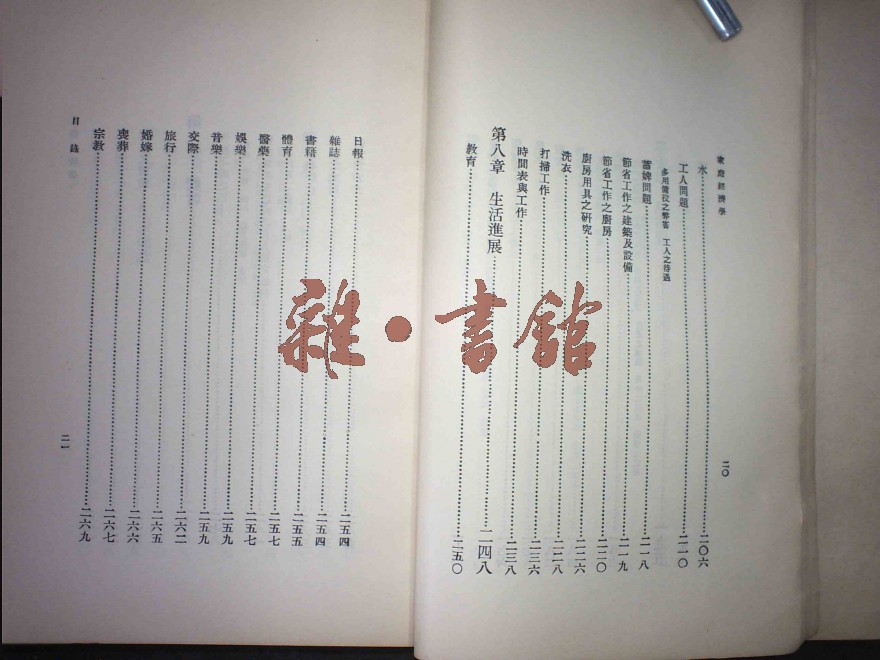 家庭經濟學
水……二〇六
工人問題……二一〇
多用僕役之弊害　工人之待遇
蓄婢問題……二一八
節省工作之建築及設備……二一九
節省工作之廚房……二二〇
廚房用具之研究……二二六
洗衣……二二八
打掃工作……二三六
時間表與工作……二三八
第八章　生活進展……二四八
教育……二五〇
二〇
日報……二五四
雜誌……二五四
書籍……二五五
體育……二五五
醫藥……二五七
娛樂……二五七
音樂……二五九
交際……二五九
旅行……二六二
婚嫁……二六五
喪葬……二六六
宗教……二六七
目錄
二一
二六九
雜·書館